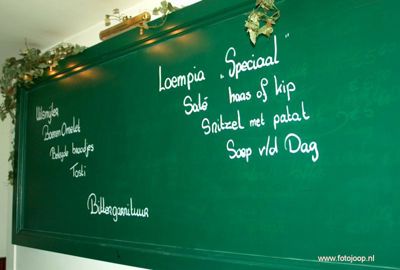 Uitsmijter
Boeren Omelet
Belegde broodjes
Tosti
Bittergarnituur
Loempia „Speciaal"
Saté haas of kip
Snitzel met patat
Soep v/d Dag
www.fotojoop.nl